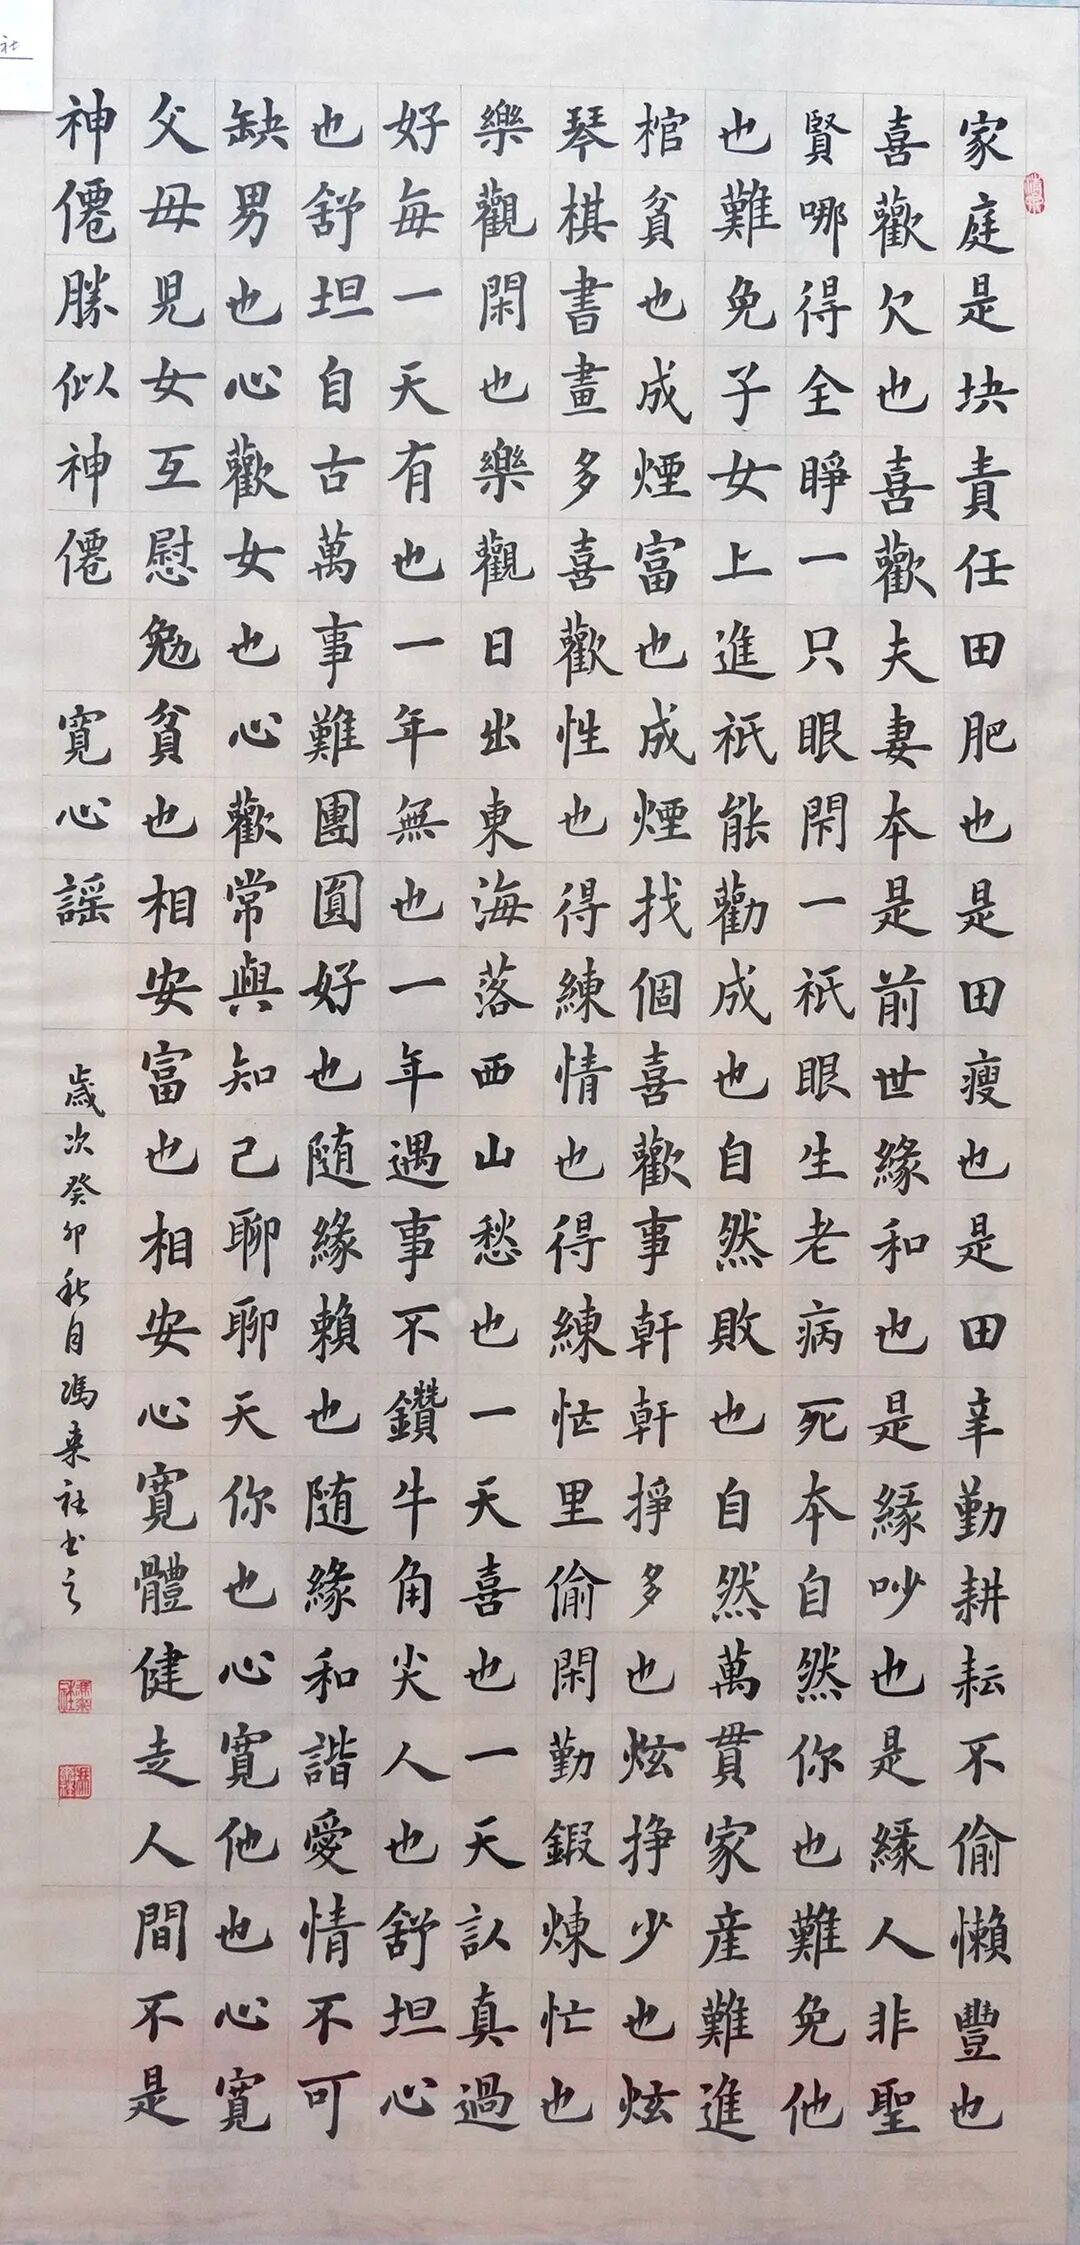 家庭是块責任田肥也是田瘦也是田辛勤耕耘不偷懶豐也
喜歡欠也喜歡夫妻本是前世緣和也是緣吵也是緣人非聖
賢哪得全睜一只眼閑一祇眼生老病死本自然你也難免他
也難免子女上進祇能勸成也自然敗也自然萬貫家產難進
棺貧也成煙富也成煙找個喜歡事軒軒掙多也炫掙少也炫
琴棋書畫多喜歡性也得練情也得練忙里偷閑勤鍛煉忙也
樂觀閑也樂觀日出東海落西山愁也一天喜也一天訟真過
好每一天有也一年無也一年遇事不鑽牛角尖人也舒坦心
也舒坦自古萬事難團圓好也随緣賴也随緣和諧愛情不可
缺男也心歡女也心歡常與知己聊聊天你也心寬他也心寬
父母兒女互慰勉貧也相安富也相安心寬體健走人間不是
神僊勝似神僊 寬心謡
歲次癸卯秋月馮来社书之
社